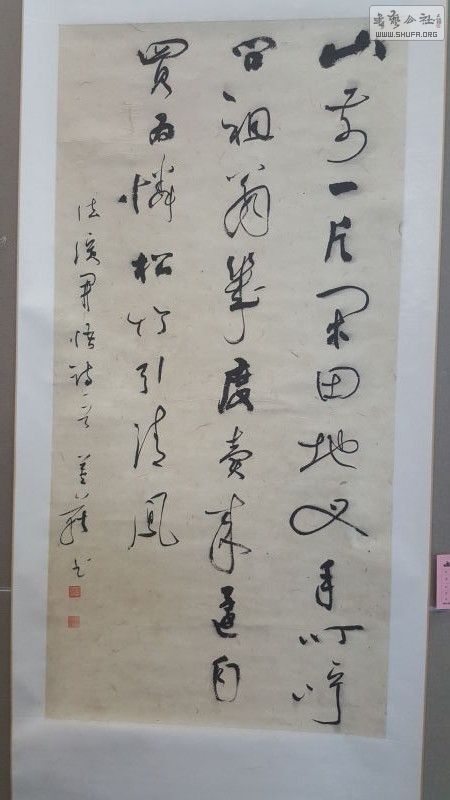 山前一片闲田地叉手叮咛
问祖翁几度卖来还自
买为怜松竹引清风
法演开悟诗一首
书
书艺公社
WWW.SHUFA.ORG